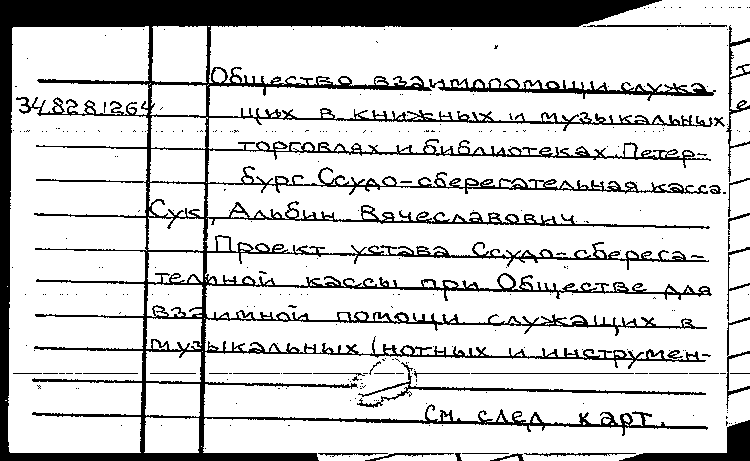 Общество взаимопомощи служа
34.8281264 щих в книжных и музыкальных
торговлях и библиотеках. Петер-
бург. Ссудо-сберегательная касса.
Сук, Альбин Вячеславович.
Проект устава Ссудо-сберега-
тельной кассы при Обществе для
взаимной помощи служащих в
музыкальных (нотных и инструмен-
См. след. карт.